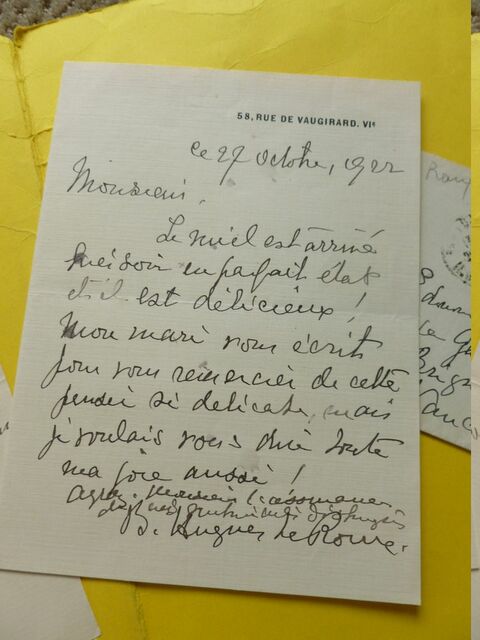 58, RUE DE VAUGIRARD. VIe
ce 27 octobre, 1922
Monsieur,
Le miel est arrivé
hier soir en parfait état
et il est délicieux !
Mon mari vous écrit
pour vous remercier de cette
pensée si délicate, mais
je voulais vous dire toute
ma joie aussi !
Agréez Monsieur l'assurance
de mes sentiments distingués
Hugues le Roux.